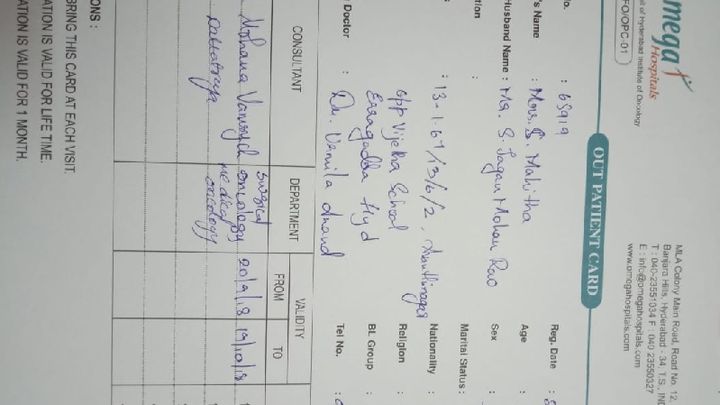 Omega
Hospitals
of Hyderabad Institute of Oncology
FO/OPC-01
MLA Colony Main Road, Road No. 12,
Banjara Hills, Hyderabad - 34, T.S., IN
T : 040-23551034 F : 040 23550327
E : info@omegahospitals.com
www.omegahospitals.com
OUT PATIENT CARD
No. : 65919 Reg. Date :
's Name : Mrs. S. Mahitha Age :
Husband Name : Mr. S. Jagan Mohan Rao Sex :
tion : Marital Status :
: 13-1-67/13/6/2, Nationality :
Opp Vijetha School Religion :
Erragadda Hyd Bl. Group :
Doctor : Dr. Urmila Anand Tel No. :
CONSULTANT DEPARTMENT VALIDITY
FROM TO
Mohana Vamsy Surgical oncology 20/9/18 19/10/18
medical oncology
ONS :
BRING THIS CARD AT EACH VISIT.
ATION IS VALID FOR LIFE TIME.
ATION IS VALID FOR 1 MONTH.